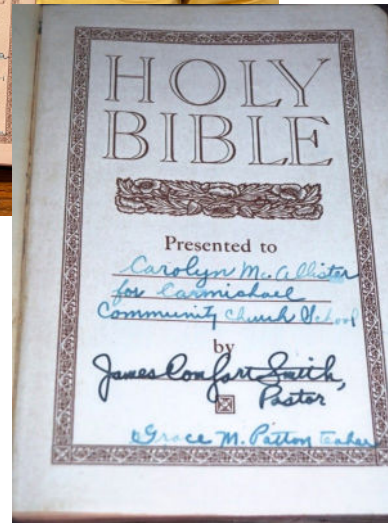 HOLY
BIBLE
Presented to
Carolyn McAllister
for Carmichael
Community Church School
by
James Comfort Smith,
Pastor
Grace M. Patton Teaher